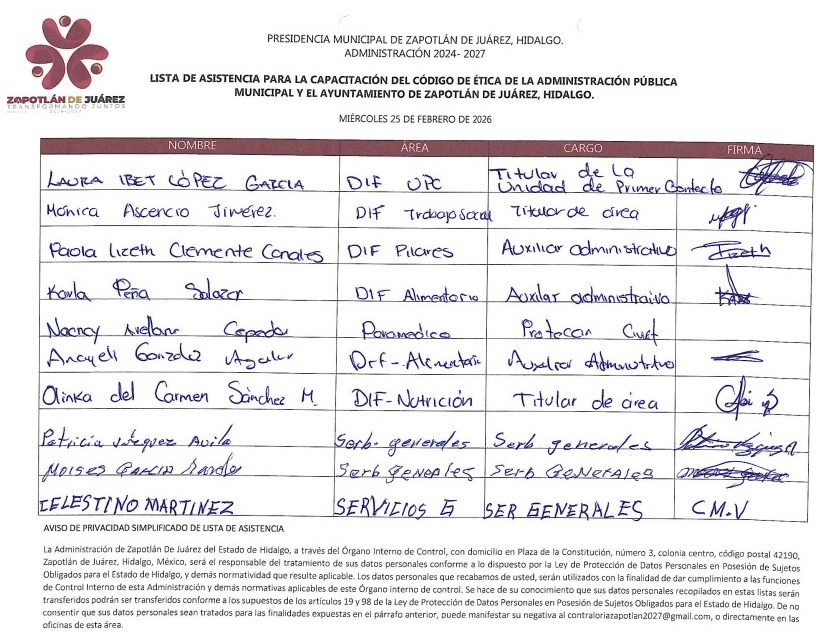 PRESIDENCIA MUNICIPAL DE ZAPOTLÁN DE JUÁREZ, HIDALGO.
ADMINISTRACIÓN 2024- 2027
ZAPOTLÁN DE JUÁREZ
TRANSFORMANDO JUNTOS
2024-2027
LISTA DE ASISTENCIA PARA LA CAPACITACIÓN DEL CÓDIGO DE ÉTICA DE LA ADMINISTRACIÓN PÚBLICA
MUNICIPAL Y EL AYUNTAMIENTO DE ZAPOTLÁN DE JUÁREZ, HIDALGO.
MIÉRCOLES 25 DE FEBRERO DE 2026
NOMBRE ÁREA CARGO FIRMA
LAURA IBET LÓPEZ GARCIA DIF UPC Titular de La Unidad de Primer Contacto
Mónica Ascencio Jiménez. DIF Trabajo Social Titular de área
Paola Lizeth Clemente Canales DIF Pilares Auxiliar administrativo Lizeth
Karla Peña Salazar DIF Alimentario Auxilar administrativo
Nancy Arellano Cepeda Paramedico Proteccion Civil
Anayeli González Aguilar Dif-Alimentario Auxiliar Administrativo
Olinka del Carmen Sánchez M. DIF-Nutrición Titular de área
Patricia Vázquez Avila Serb. generales Serb generales
MOISES GARCIA Serb GENERALES Serb GENERALES
CELESTINO MARTINEZ SERVICIOS G SER GENERALES C.M.V
AVISO DE PRIVACIDAD SIMPLIFICADO DE LISTA DE ASISTENCIA
La Administración de Zapotlán De Juárez del Estado de Hidalgo, a través del Órgano Interno de Control, con domicilio en Plaza de la Constitución, número 3, colonia centro, código postal 42190,
Zapotlán de Juárez, Hidalgo, México, será el responsable del tratamiento de sus datos personales conforme a lo dispuesto por la Ley de Protección de Datos Personales en Posesión de Sujetos
Obligados para el Estado de Hidalgo, y demás normatividad que resulte aplicable. Los datos personales que recabamos de usted, serán utilizados con la finalidad de dar cumplimiento a las funciones
de Control Interno de esta Administración y demás normativas aplicables de este Órgano interno de control. Se hace de su conocimiento que sus datos personales recopilados en estas listas serán
transferidos podrán ser transferidos conforme a los supuestos de los artículos 19 y 98 de la Ley de Protección de Datos Personales en Posesión de Sujetos Obligados para el Estado de Hidalgo. De no
consentir que sus datos personales sean tratados para las finalidades expuestas en el párrafo anterior, puede manifestar su negativa al contraloriazapotlan2027@gmail.com, o directamente en las
oficinas de esta área.